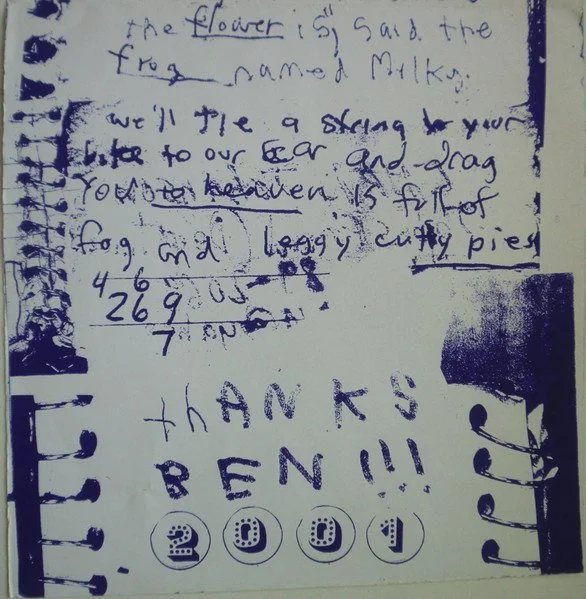 the flower is," said the
frog named Milky.
we'll tie a string to your
bike to our Ear and drag
You to heaven is full of
frog and leggy cutty pies
4 6
269
7
thANKS
BEN!!!
2001